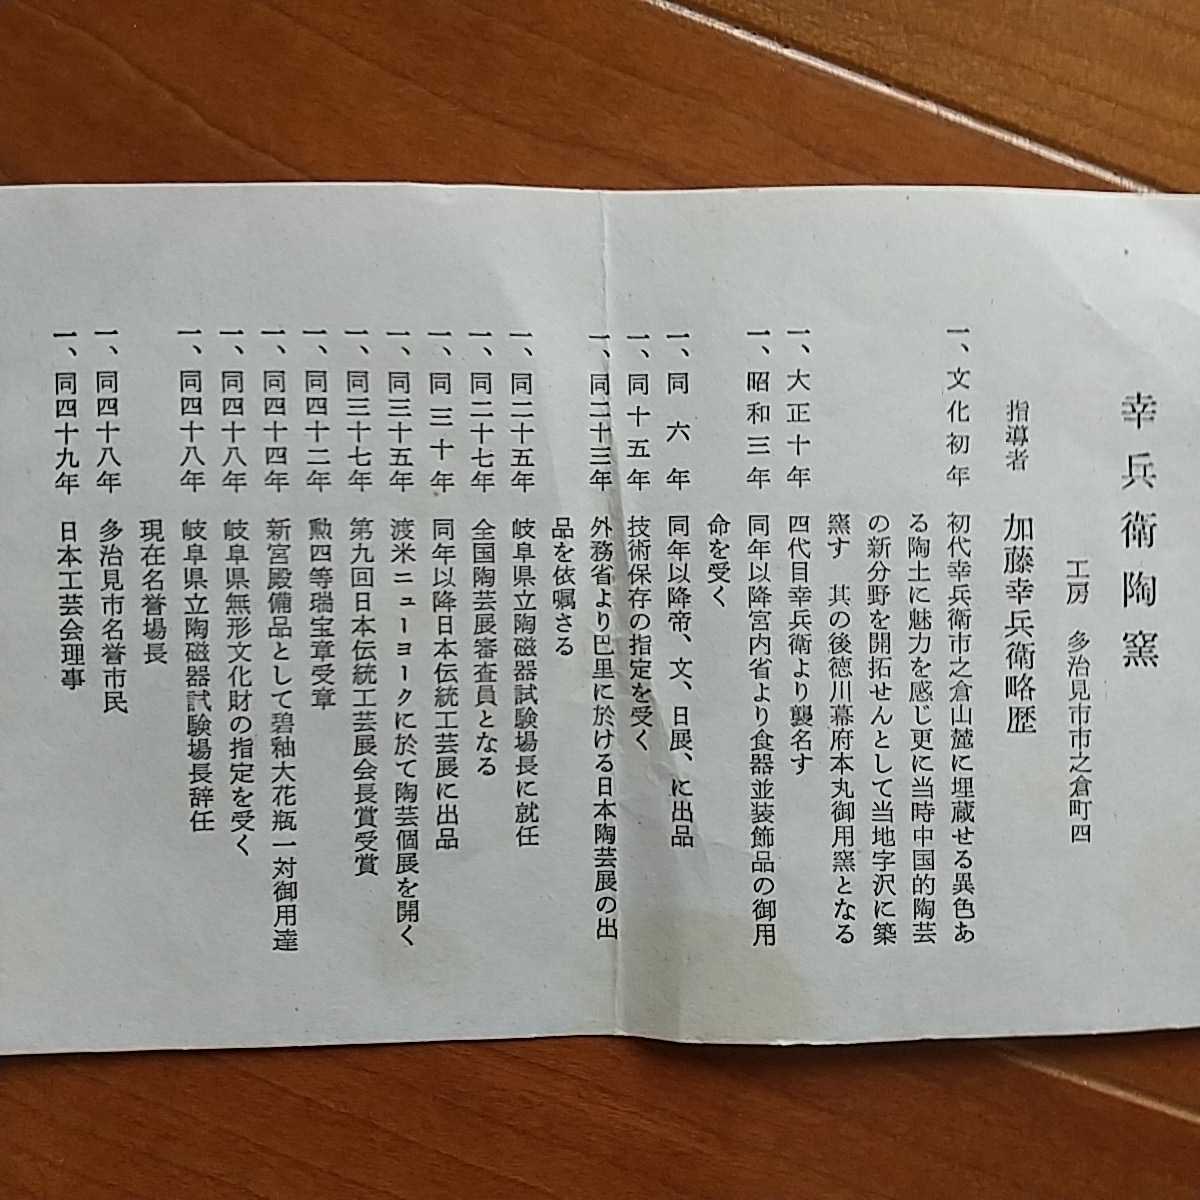 幸兵衛陶窯
工房　多治見市市之倉町四
指導者　加藤幸兵衛略歴
一、文化初年　初代幸兵衛市之倉山麓に埋蔵せる異色あ
る陶土に魅力を感じ更に当時中国的陶芸
の新分野を開拓せんとして当地字沢に築
窯す　其の後徳川幕府本丸御用窯となる
一、大正十年　四代目幸兵衛より襲名す
一、昭和三年　同年以降宮内省より食器並装飾品の御用
命を受く
一、同六年　同年以降帝、文、日展、に出品
一、同十五年　技術保存の指定を受く
一、同二十三年　外務省より巴里に於ける日本陶芸展の出
品を依嘱さる
一、同二十五年　岐阜県立陶磁器試験場長に就任
一、同二十七年　全国陶芸展審査員となる
一、同三十年　同年以降日本伝統工芸展に出品
一、同三十五年　渡米ニューヨークに於て陶芸個展を開く
一、同三十七年　第九回日本伝統工芸展会長賞受賞
一、同四十二年　勲四等瑞宝章受章
一、同四十四年　新宮殿備品として碧釉大花瓶一対御用達
一、同四十八年　岐阜県無形文化財の指定を受く
一、同四十八年　岐阜県立陶磁器試験場長辞任
現在名誉場長
一、同四十八年　多治見市名誉市民
一、同四十九年　日本工芸会理事